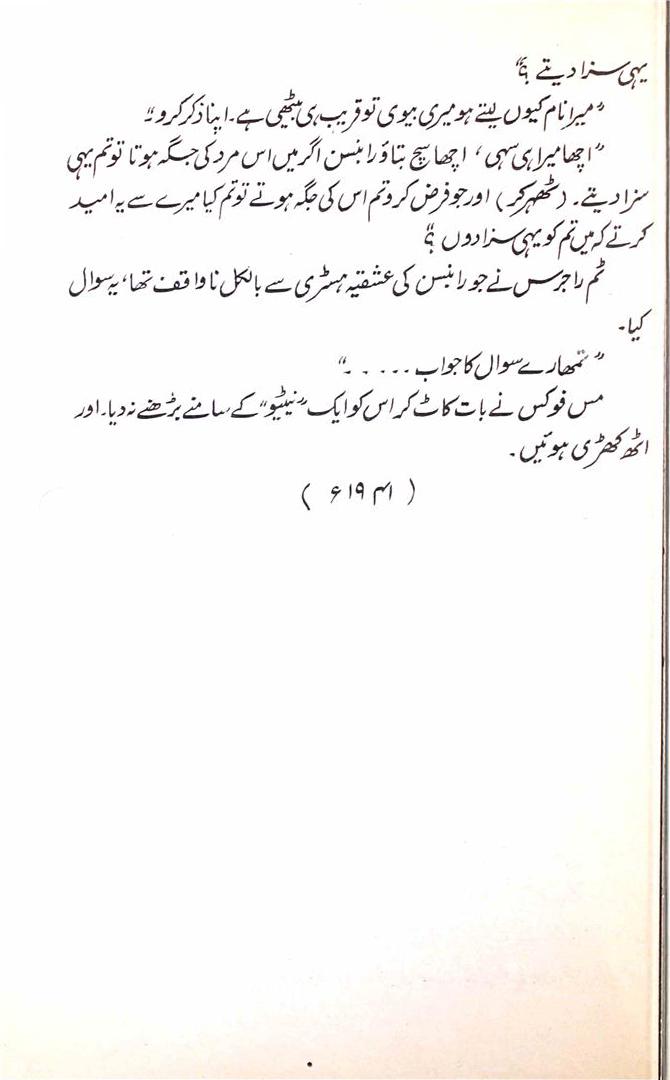 یہی سزا دیتے ؟“
”میرا نام کیوں لیتے ہو میری بیوی تو قریب ہی بیٹھی ہے۔ اپنا ذکر کرو۔“
”اچھا میرا ہی سہی، اچھا سچ بتاؤ رابنسن اگر میں اس مرد کی جگہ ہوتا تو تم یہی
سزا دیتے۔ (ٹھہر کر) اور جو فرض کرو تم اس کی جگہ ہوتے تو تم کیا میرے سے یہ امید
کرتے کہ میں تم کو یہی سزا دوں ؟“
ٹم راجرس نے جو رابنسن کی عشقیہ ہسٹری سے بالکل ناواقف تھا، یہ سوال
کیا۔
”تمھارے سوال کا جواب ۔۔۔۔۔“
مس فوکس نے بات کاٹ کر اس کو ایک ”نیٹیو“ کے سامنے بڑھنے نہ دیا۔ اور
اٹھ کھڑی ہوئیں۔
(۱۹۴۱ء)